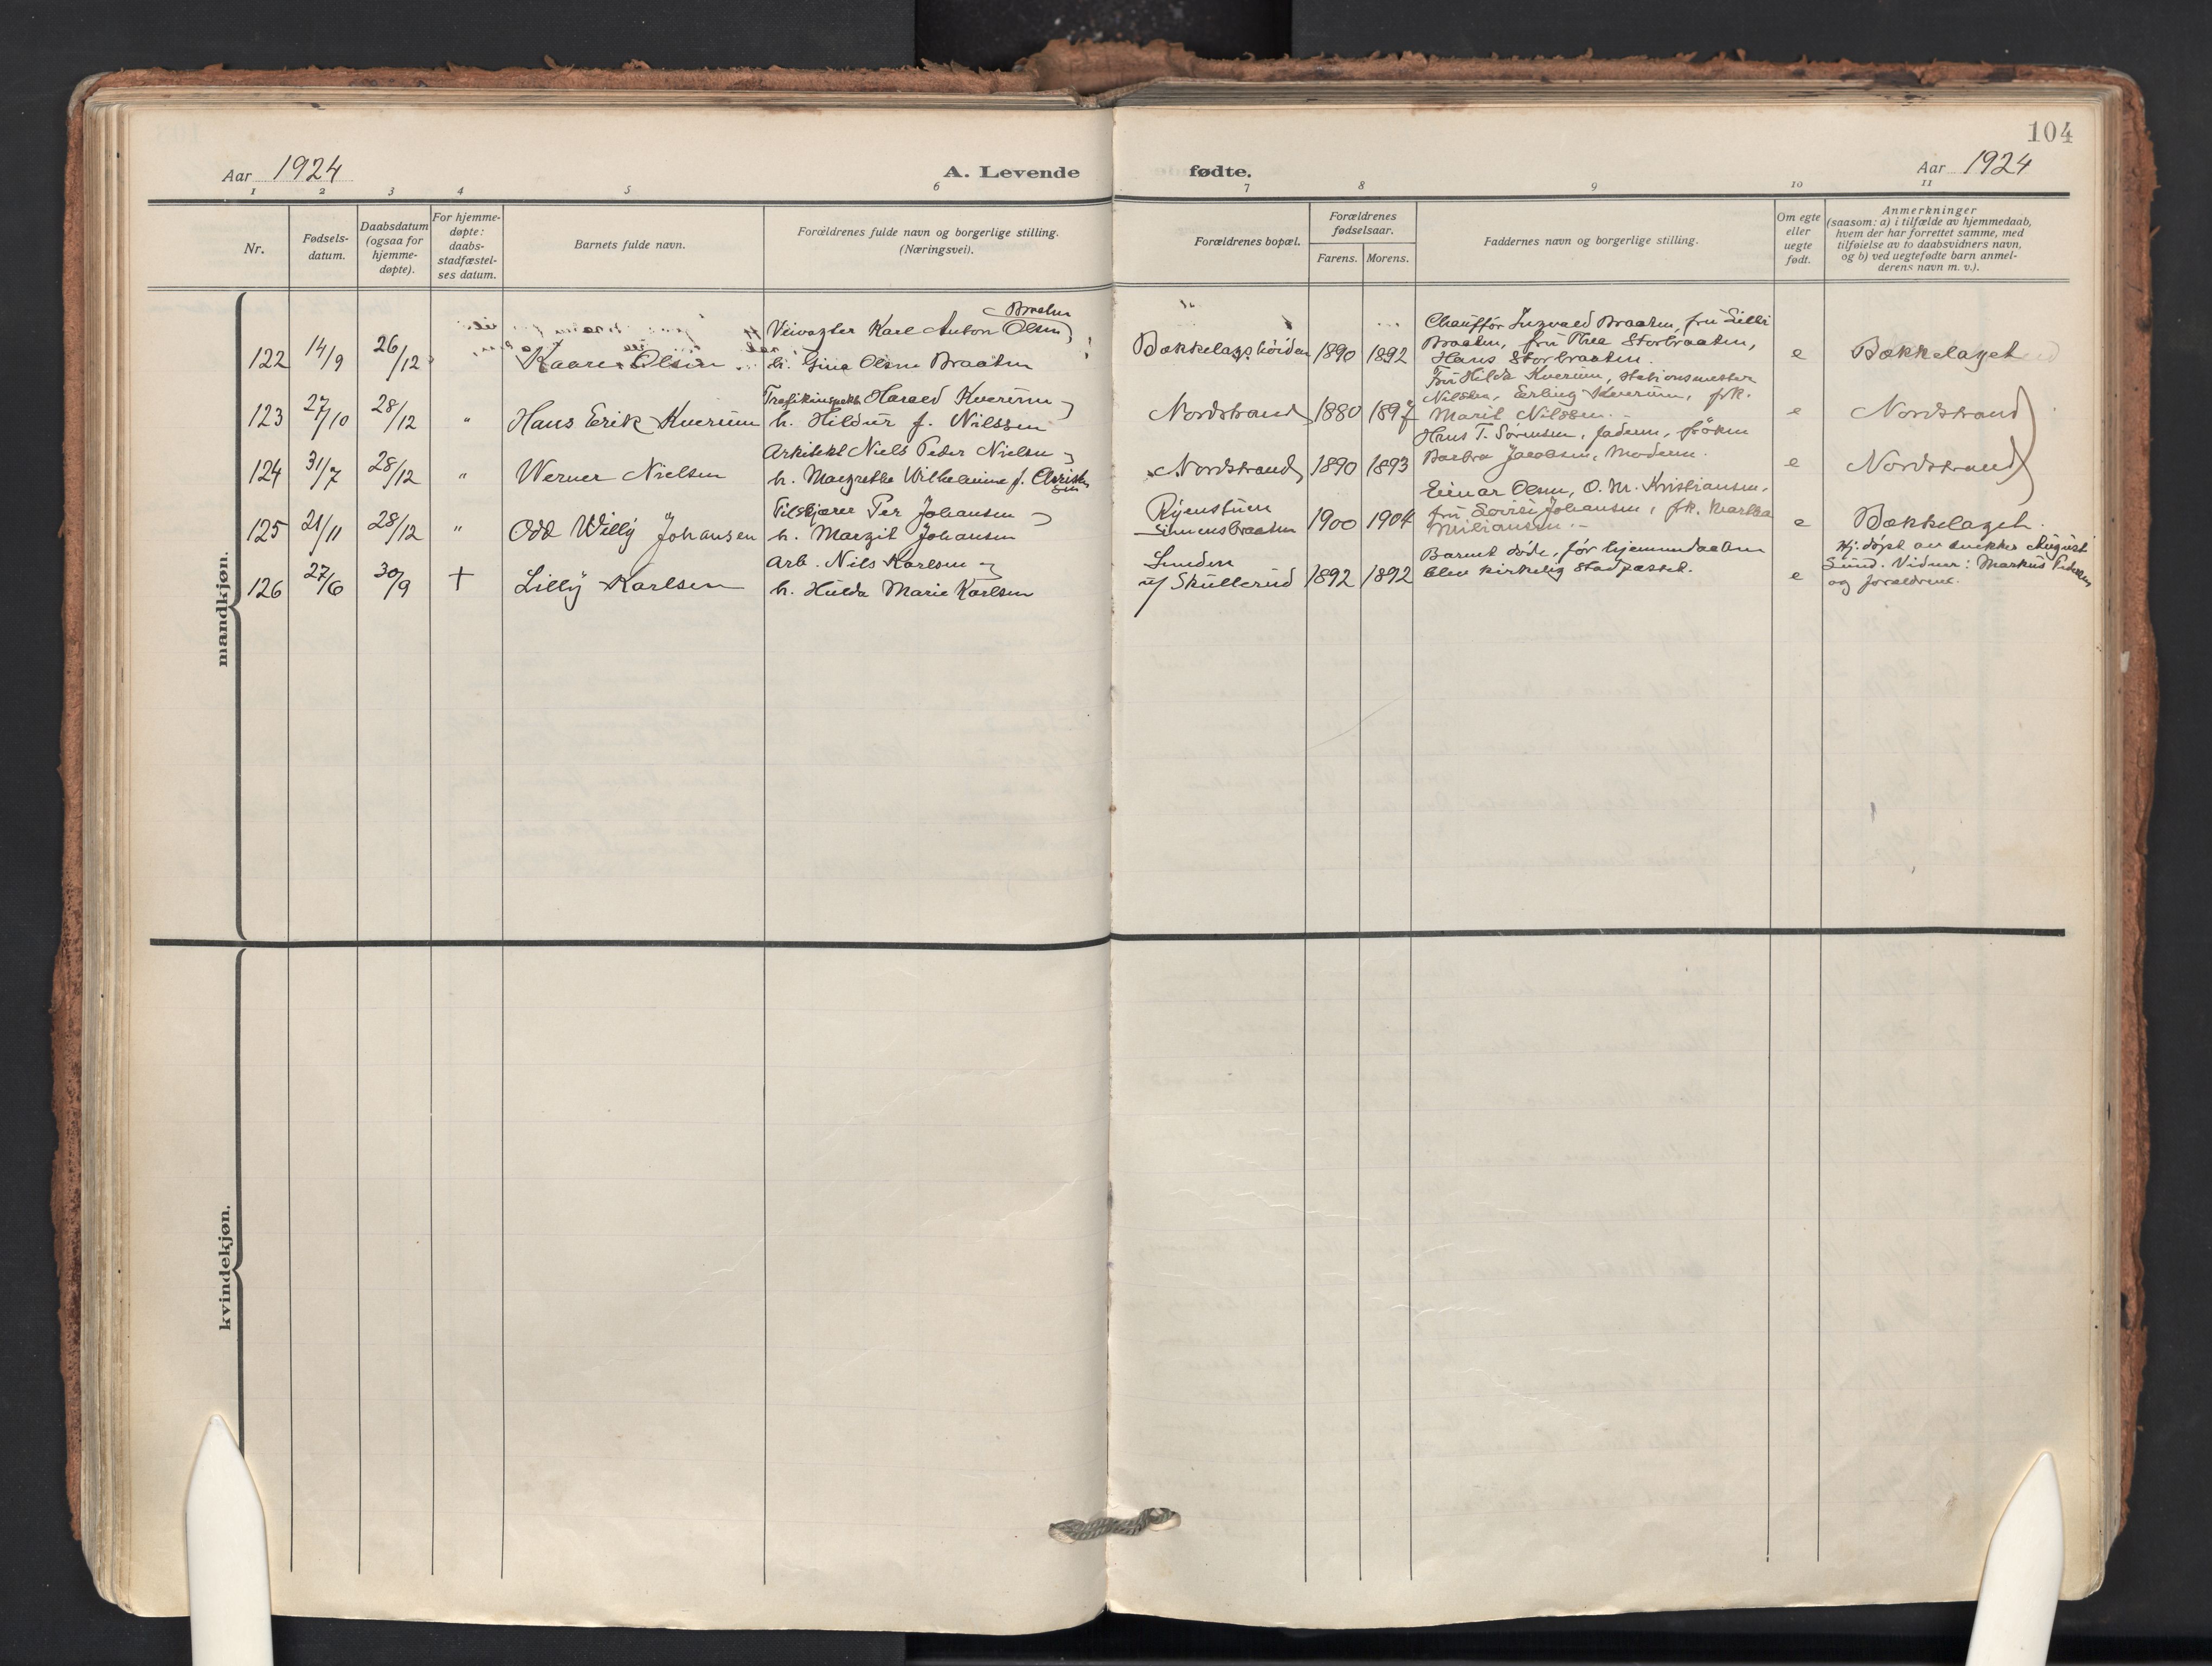 104
Aar 1924
A. Levende
fødte.
Aar 1924
1 2 3 4 5 6 7 8 9 10 11
Nr.
Fødsels-
datum.
Daabsdatum
(ogsaa for
hjemme-
døpte).
For hjemme-
døpte:
daabs-
stadfæstel-
ses datum.
Barnets fulde navn.
Forældrenes fulde navn og borgerlige stilling.
(Næringsvei).
Forældrenes bopæl.
Forældrenes
fødselsaar.
Farens. Morens.
Faddernes navn og borgerlige stilling.
Om egte
eller
uegte
født.
Anmerkninger
(saasom: a) i tilfælde av hjemmedaab,
hvem der har forrettet samme, med
tilføielse av to daabsvidners navn,
og b) ved uegtefødte barn anmel-
derens navn m. v.).
mandkjøn.
122 14/9 26/12 Kaare Olsen
Braaten
Veivogter Karl Anton Olsen
h. Gina Olsen Braaten
Bækkelagshöiden 1890 1892
Chauffør Ingvald Braaten, fru Lilli
Braaten, fru Thea Storbraaten,
Hans Storbraaten.
e Bækkelaget
123 27/10 28/12 " Hans Erik Kverum
Trafikinspekt. Harald Kverum
h. Hildur f. Nilssen
Nordstrand 1880 1897
Fru Hilda Kverum, stationsmester
Nilssen, Erling Kverum, frk.
Marit Nilssen.
e Nordstrand
124 31/7 28/12 " Werner Nielsen
Arkitekt Niels Peder Nielsen
h. Margrethe Wilhelmine f. Christen
sen
Nordstrand 1890 1893
Hans T. Sørensen, faderen, frøken
Barbra Jacobsen, moderen.
e Nordstrand
125 21/11 28/12 " Odd Willy Johansen
Per Johansen
h. Margit Johansen
Ryenstuen
Simensbraaten 1900 1904
Einar Olsen, O. M. Kristiansen,
fru Lovise Johansen, frk. Martha
e Bækkelaget.
126 27/6 30/9 + Lilly Karlsen
Arb. Nils Karlsen
h. Hulda Marie Karlsen
Linden
u/ Skullerud 1892 1892
Barnet døde, før hjemmedaaben
blev kirkelig stadfæstet.
e
Hj. døpt av snekker August
Sund. Vidner: Markus Pedersen
og forældrene.
kvindekjøn.